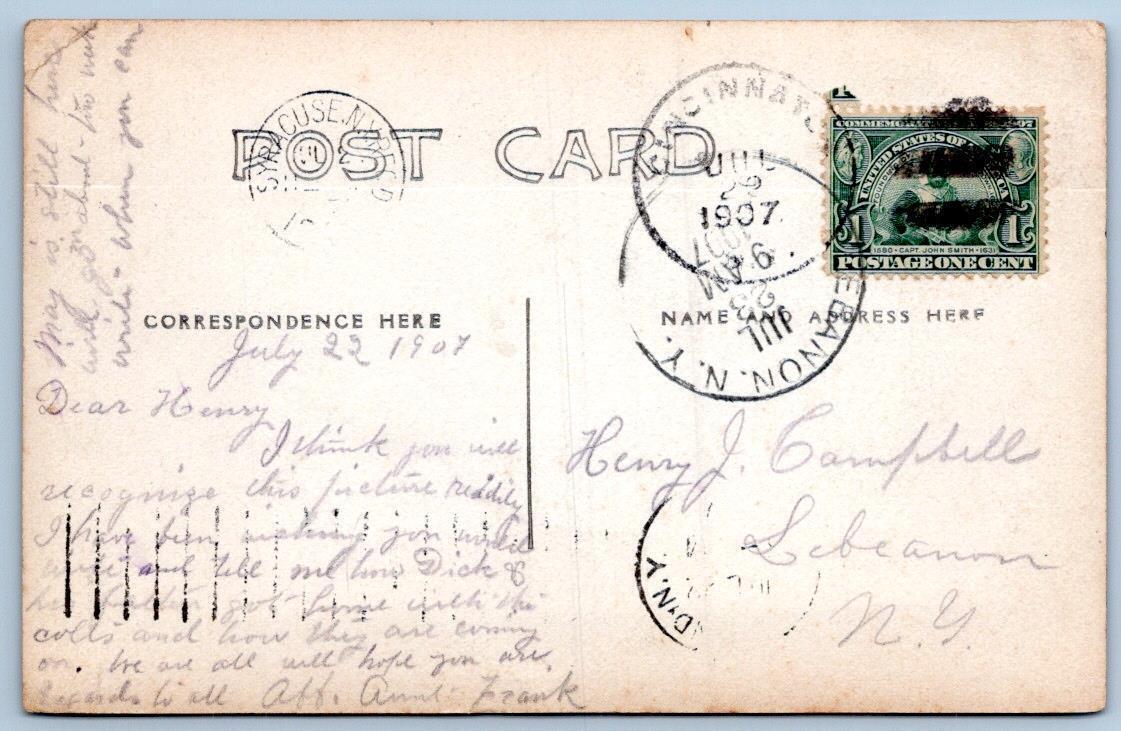 POST CARD
SYRACUSE, N.Y. REC'D
CINCINNATUS
JUL
22
1907
LEBANON, N.Y.
JUL
23
9 AM
1907
COMMEMORATIVE 1907
UNITED STATES OF AMERICA
1
1
1580 • CAPT. JOHN SMITH • 1631
POSTAGE ONE CENT
CORRESPONDENCE HERE
NAME AND ADDRESS HERE
July 22 1907
Dear Henry
I think you will
recognize this picture readily
I have been wishing you would
write and tell me how Dick &
his father got home with the
colts and how they are coming
on. We are all well hope you are.
Regards to all Aff. Aunt Frank
May is still here
will go in about two weeks
write when you can
Henry J. Campbell
Lebeanon
N.Y.
D N.Y.